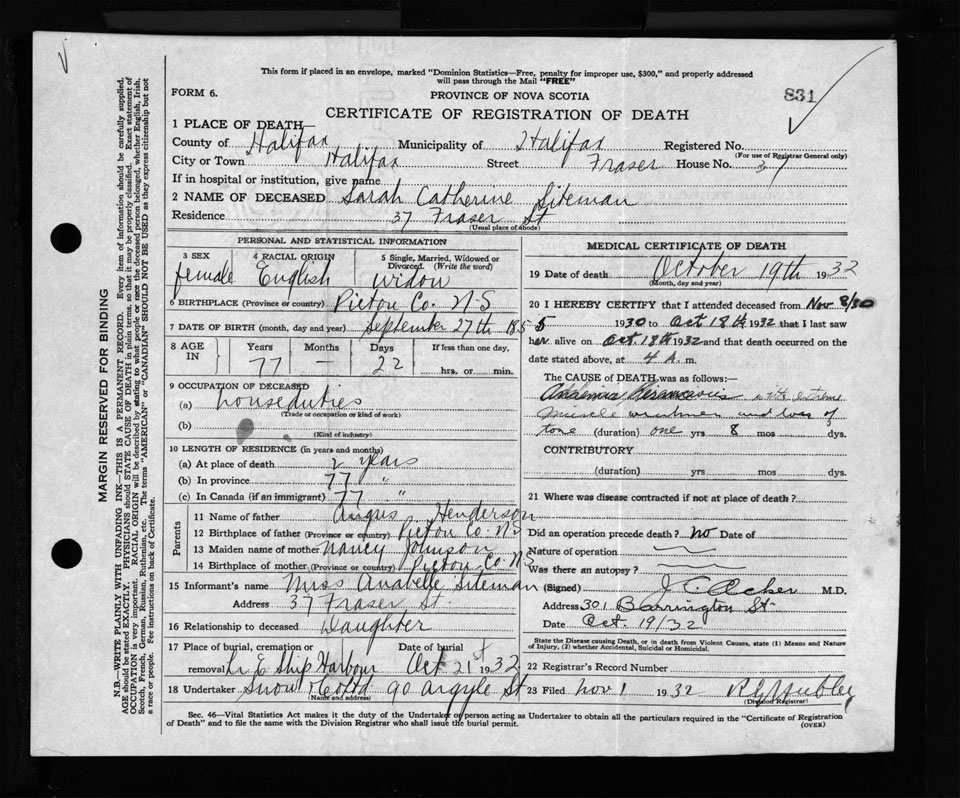 This form if placed in an envelope, marked "Dominion Statistics—Free, penalty for improper use, $300," and properly addressed
will pass through the Mail "FREE"
FORM 6.
PROVINCE OF NOVA SCOTIA
831
CERTIFICATE OF REGISTRATION OF DEATH
1 PLACE OF DEATH—
County of Halifax Municipality of Halifax Registered No.
(For use of Registrar General only)
City or Town Halifax Street Fraser House No. 37
If in hospital or institution, give name
2 NAME OF DECEASED Sarah Catherine Siteman
Residence 37 Fraser St
(Usual place of abode)
PERSONAL AND STATISTICAL INFORMATION
3 SEX 4 RACIAL ORIGIN 5 Single, Married, Widowed or Divorced. (Write the word)
female English widow
6 BIRTHPLACE (Province or country) Pictou Co. N-S
7 DATE OF BIRTH (month, day and year) September 27th 1855
8 AGE IN Years Months Days If less than one day,
77 — 22 hrs. or min.
9 OCCUPATION OF DECEASED
(a) houseduties
(Trade or occupation or kind of work)
(b)
(Kind of industry)
10 LENGTH OF RESIDENCE (in years and months)
(a) At place of death 2 years
(b) In province 77 "
(c) In Canada (if an immigrant) 77 "
Parents
11 Name of father Angus Henderson
12 Birthplace of father (Province or country) Pictou Co. NS
13 Maiden name of mother Nancy Johnson
14 Birthplace of mother (Province or country) Pictou Co. NS
15 Informant's name Miss Anabelle Siteman
Address 37 Fraser St.
16 Relationship to deceased Daughter
17 Place of burial, cremation or Date of burial
removal Lr E Ship Harbour Oct 21st 1932
18 Undertaker Snow & Co Ltd 90 Argyle St
(Name and address)
MEDICAL CERTIFICATE OF DEATH
19 Date of death October 19th 1932
(Month, day and year)
20 I HEREBY CERTIFY that I attended deceased from Nov 8/30
1930 to Oct 18th 1932 that I last saw
her alive on Oct 18th 1932 and that death occurred on the
date stated above, at 4 A. m.
The CAUSE of DEATH was as follows:—
Anaemia Pernicious with extreme
muscle weakness and loss of
tone (duration) one yrs 8 mos dys.
CONTRIBUTORY
(duration) yrs mos dys.
21 Where was disease contracted if not at place of death?
Did an operation precede death? no Date of
Nature of operation
Was there an autopsy?
(Signed) M.D.
Address 301 Barrington St-
Date Oct. 19/32
State the Disease causing Death, or in death from Violent Causes, state (1) Means and Nature
of Injury, (2) whether Accidental, Suicidal or Homicidal.
22 Registrar's Record Number
23 Filed Nov 1 1932
(Division Registrar)
Sec. 46—Vital Statistics Act makes it the duty of the Undertaker or person acting as Undertaker to obtain all the particulars required in the "Certificate of Registration
of Death" and to file the same with the Division Registrar who shall issue the burial permit.
(OVER)
MARGIN RESERVED FOR BINDING
N.B.—WRITE PLAINLY WITH UNFADING INK—THIS IS A PERMANENT RECORD. Every item of information should be carefully supplied.
AGE should be stated EXACTLY. PHYSICIANS should STATE CAUSE OF DEATH in plain terms, so that it may be properly classified. Exact statement of
OCCUPATION is very important. RACIAL ORIGIN will be described by stating to what people or race the deceased person belonged, whether English, Irish,
Scotch, French, German, Russian, Ruthenian, etc. The terms "AMERICAN" or "CANADIAN" SHOULD NOT BE USED as they express citizenship but not
a race or people. Fee instructions on back of Certificate.